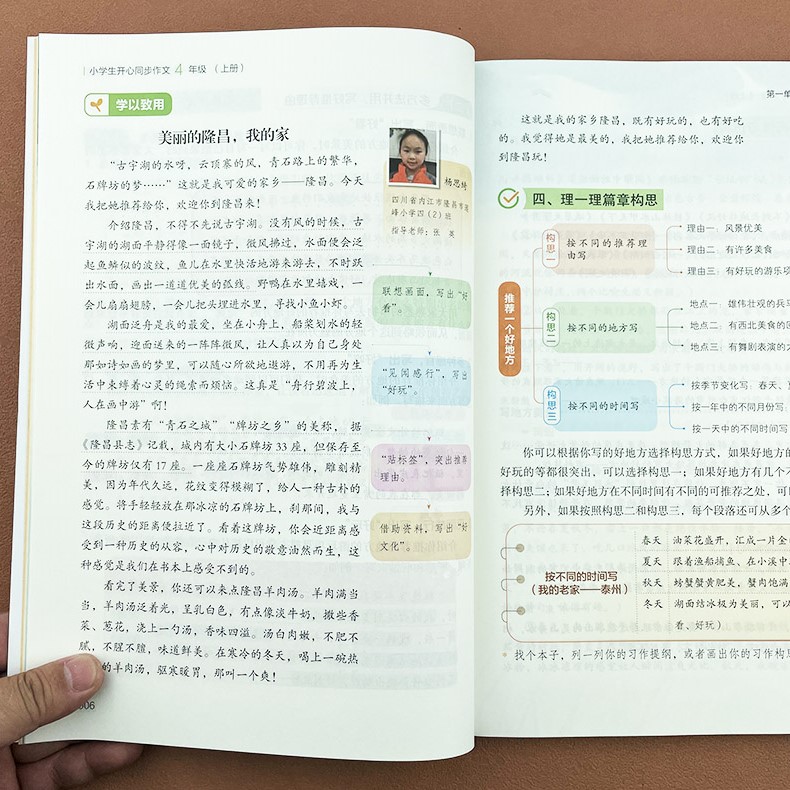 小学生开心同步作文 4 年级 （上册）
学以致用
美丽的隆昌，我的家
“古宇湖的水呀，云顶寨的风，青石路上的繁华，
石牌坊的梦……”这就是我可爱的家乡——隆昌。今天
我把她推荐给你，欢迎你到隆昌来！
介绍隆昌，不得不先说古宇湖。没有风的时候，古
宇湖的湖面平静得像一面镜子，微风拂过，水面便会泛
起鱼鳞似的波纹，鱼儿在水里快活地游来游去，不时跃
出水面，画出一道道优美的弧线。野鸭在水里嬉戏，一
会儿扇扇翅膀，一会儿把头埋进水里，寻找小鱼小虾。
湖面泛舟是我的最爱，坐在小舟上，船桨划水的轻
微声响，迎面送来的一阵阵微风，让人真以为自己身处
那如诗如画的梦里，可以随心所欲地遨游，不用再为生
活中束缚着心灵的绳索而烦恼。这真是“舟行碧波上，
人在画中游”啊！
隆昌素有“青石之城”“牌坊之乡”的美称，据
《隆昌县志》记载，城内有大小石牌坊 33 座，但保存至
今的牌坊仅有 17 座。一座座石牌坊气势雄伟，雕刻精
美，因为年代久远，花纹变得模糊了，给人一种古朴的
感觉。将手轻轻放在那冰凉的石牌坊上，刹那间，我与
这段历史的距离便拉近了。看着这牌坊，你会近距离感
受到一种历史的从容，心中对历史的敬意油然而生，这
种感觉是我们在书本上感受不到的。
看完了美景，你还可以来点隆昌羊肉汤。羊肉满当
当，羊肉汤泛着光，呈乳白色，有点像淡牛奶，撒些香
菜、葱花，浇上一勺汤，香味四溢。汤白肉嫩，不肥不
腻，不腥不膻，味道鲜美。在寒冷的冬天，喝上一碗热
的羊肉汤，驱寒暖胃，那叫一个爽！
06
杨思琦
四川省内江市隆昌市
峰小学四（2）班
指导老师：张 英
联想画面，写出“好
看”。
“见闻感行”，写出
“好玩”。
“贴标签”，突出推荐
理由。
借助资料，写出“好
文化”。
第一单
这就是我的家乡隆昌，既有好玩的，也有好吃
的。我觉得她是最美的，我把她推荐给你，欢迎你
到隆昌玩！
四、理一理篇章构思
推荐一个好地方
构思一
按不同的推荐理
由写
理由一：风景优美
理由二：有许多美食
理由三：有好玩的游乐项
构思二
按不同的地方写
地点一：雄伟壮观的兵马
地点二：有西北美食的回
地点三：有舞剧表演的大
构思三
按不同的时间写
按季节变化写：春天、
按一年中的不同月份写：
按一天中的不同时间写
你可以根据你写的好地方选择构思方式，如果好地方的
好玩的等都很突出，可以选择构思一；如果好地方有几个不
择构思二；如果好地方在不同时间有不同的可推荐之处，可以
另外，如果按照构思二和构思三，每个段落还可从多个
按不同的时间写
（我的老家——泰州）
春天 油菜花盛开，汇成一片金
夏天 跟着渔船捕鱼、在小溪中
秋天 螃蟹蟹黄肥美，蟹肉饱满
冬天 湖面结冰极为美丽，可以
看、好玩）
找个本子，列一列你的习作提纲，或者画出你的习作构思